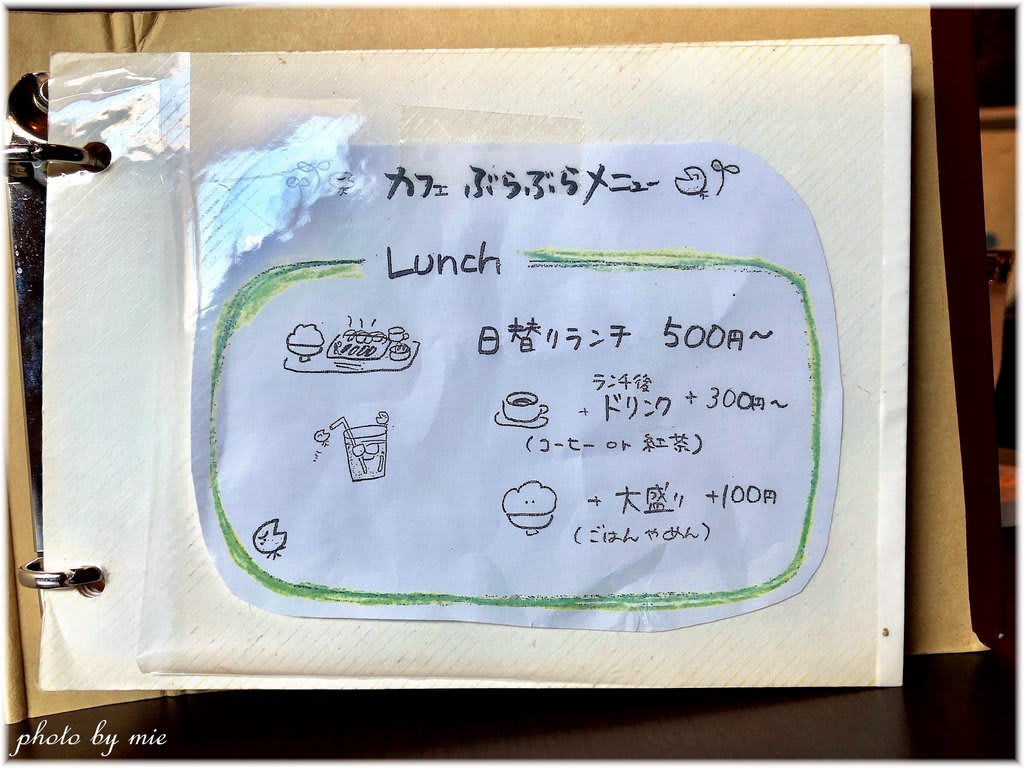 カフェ ぶらぶらメニュー
Lunch
日替りランチ 500円～
ランチ後
+ ドリンク +300円～
(コーヒー or 紅茶)
+ 大盛り +100円
(ごはんやめん)
photo by mie